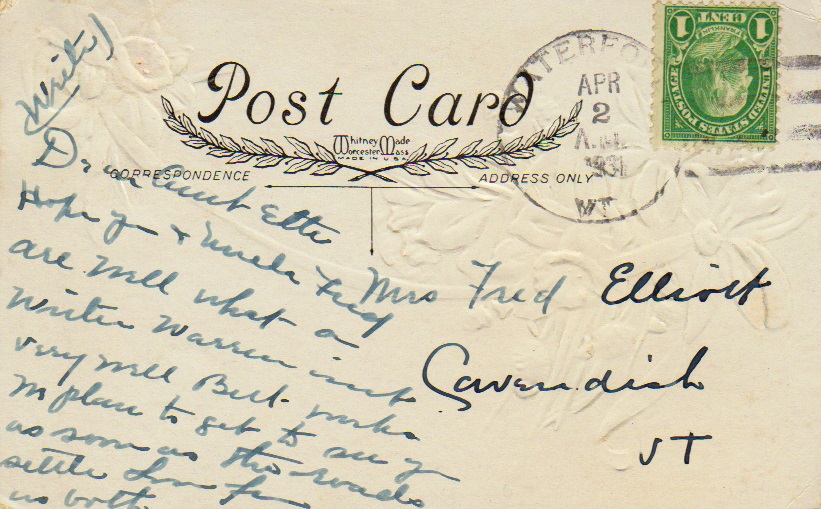 (Write)
Post Card
Whitney Made
Worcester, Mass
MADE IN U.S.A.
CORRESPONDENCE
ADDRESS ONLY
WATERFO
APR
2
A.M.
1931
VT.
1 CENT 1
UNITED STATES POSTAGE
Dear Aunt Etta
Hope you & Uncle Fred
are well what a
Winter Warren isnt
very well But works
M plan to get to see you
as soon as the roads
settle Love from
us both
Mrs Fred Elliott
Cavendish
VT